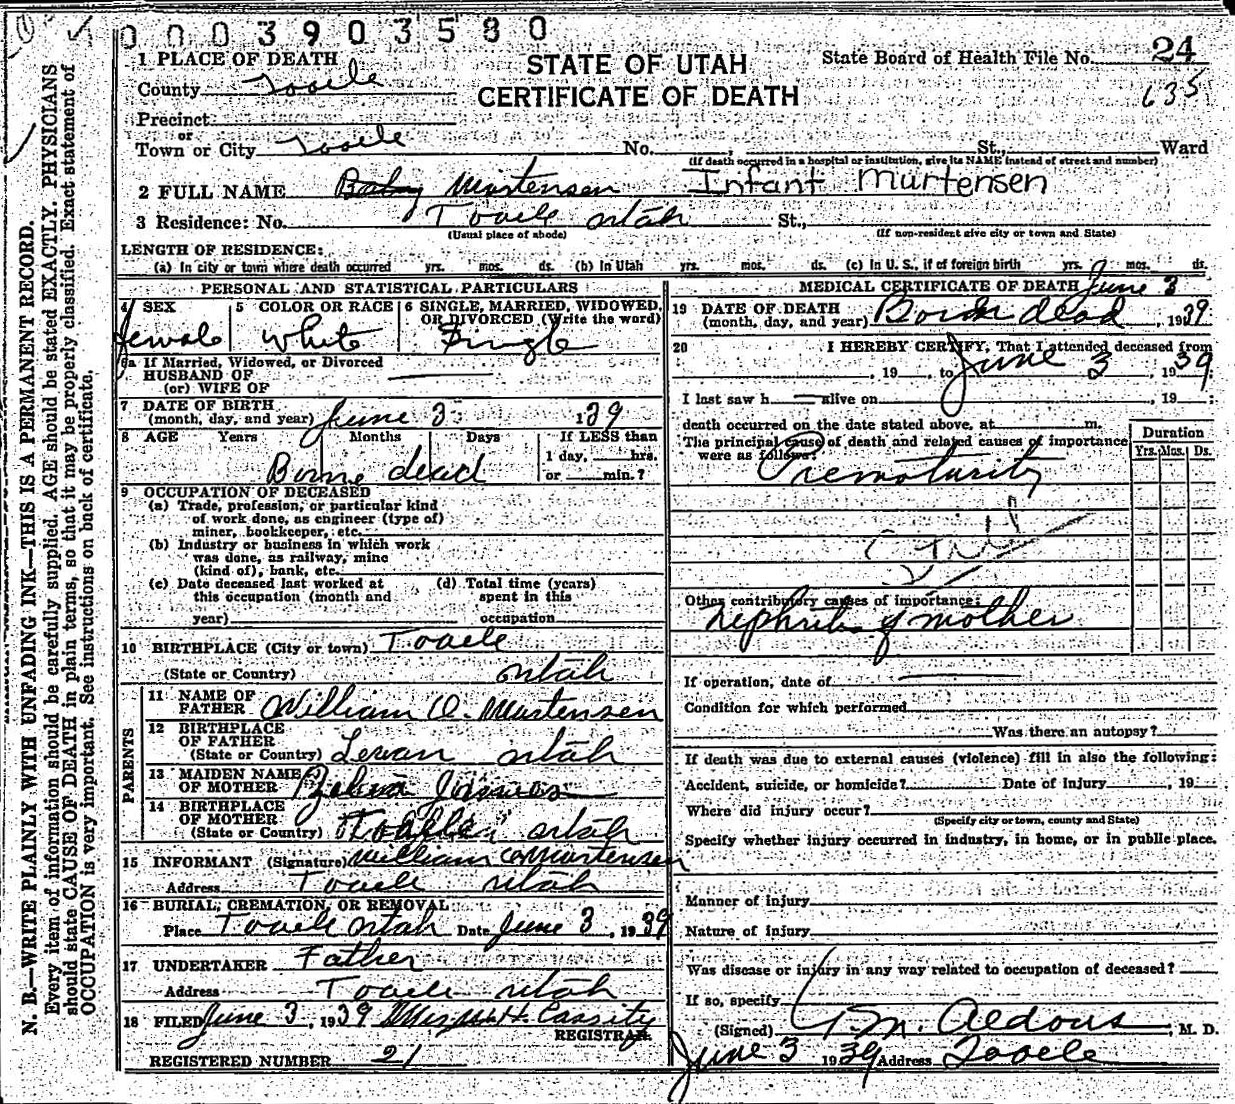 0003903580
1 PLACE OF DEATH
STATE OF UTAH
CERTIFICATE OF DEATH
State Board of Health File No. 24
635
County Tooele
Precinct
or
Town or City Tooele No. , St., Ward
(If death occurred in a hospital or institution, give its NAME instead of street and number)
2 FULL NAME Baby Mortensen Infant Murtensen
3 Residence: No. Tooele Utah St.,
(Usual place of abode) (If non-resident give city or town and State)
LENGTH OF RESIDENCE:
(a) In city or town where death occurred yrs. mos. ds. (b) In Utah yrs. mos. ds. (c) In U. S., if of foreign birth yrs. mos. ds.
PERSONAL AND STATISTICAL PARTICULARS
4 SEX 5 COLOR OR RACE 6 SINGLE, MARRIED, WIDOWED, OR DIVORCED (Write the word)
female White Single
6a If Married, Widowed, or Divorced
HUSBAND OF
(or) WIFE OF
7 DATE OF BIRTH
(month, day, and year) June 3 139
8 AGE Years Months Days If LESS than
1 day, hrs.
or min.?
Borne dead
9 OCCUPATION OF DECEASED
(a) Trade, profession, or particular kind
of work done, as engineer (type of)
miner, bookkeeper, etc.
(b) Industry or business in which work
was done, as railway, mine
(kind of), bank, etc.
(c) Date deceased last worked at (d) Total time (years)
this occupation (month and spent in this
year) occupation
10 BIRTHPLACE (City or town) Tooele
(State or Country) Utah
PARENTS
11 NAME OF
FATHER William O. Mortensen
12 BIRTHPLACE
OF FATHER
(State or Country) Levan Utah
13 MAIDEN NAME
OF MOTHER James
14 BIRTHPLACE
OF MOTHER
(State or Country) Tooele Utah
15 INFORMANT (Signature) William O Mortensen
Address Tooele Utah
16 BURIAL, CREMATION, OR REMOVAL
Place Tooele Utah Date June 3, 1939
17 UNDERTAKER Father
Address Tooele Utah
18 FILED June 3, 1939 H. Cassity
REGISTRAR
REGISTERED NUMBER 21
MEDICAL CERTIFICATE OF DEATH June 3
19 DATE OF DEATH
(month, day, and year) Born dead, 1939
20 I HEREBY CERTIFY, That I attended deceased from
, 19 , to June 3, 1939
I last saw h alive on , 19 ;
death occurred on the date stated above, at m.
The principal cause of death and related causes of importance
were as follows:
Duration
Yrs. Mos. Ds.
Prematurity
Still
Other contributory causes of importance:
Nephritis of mother
If operation, date of
Condition for which performed
Was there an autopsy?
If death was due to external causes (violence) fill in also the following:
Accident, suicide, or homicide? Date of injury , 19
Where did injury occur?
(Specify city or town, county and State)
Specify whether injury occurred in industry, in home, or in public place.
Manner of injury
Nature of injury
Was disease or injury in any way related to occupation of deceased?
If so, specify
(Signed) J. M. Aldous, M. D.
June 3 1939 Address Tooele
N. B.—WRITE PLAINLY WITH UNFADING INK—THIS IS A PERMANENT RECORD.
Every item of information should be carefully supplied. AGE should be stated EXACTLY. PHYSICIANS
should state CAUSE OF DEATH in plain terms, so that it may be properly classified. Exact statement of
OCCUPATION is very important. See instructions on back of certificate.